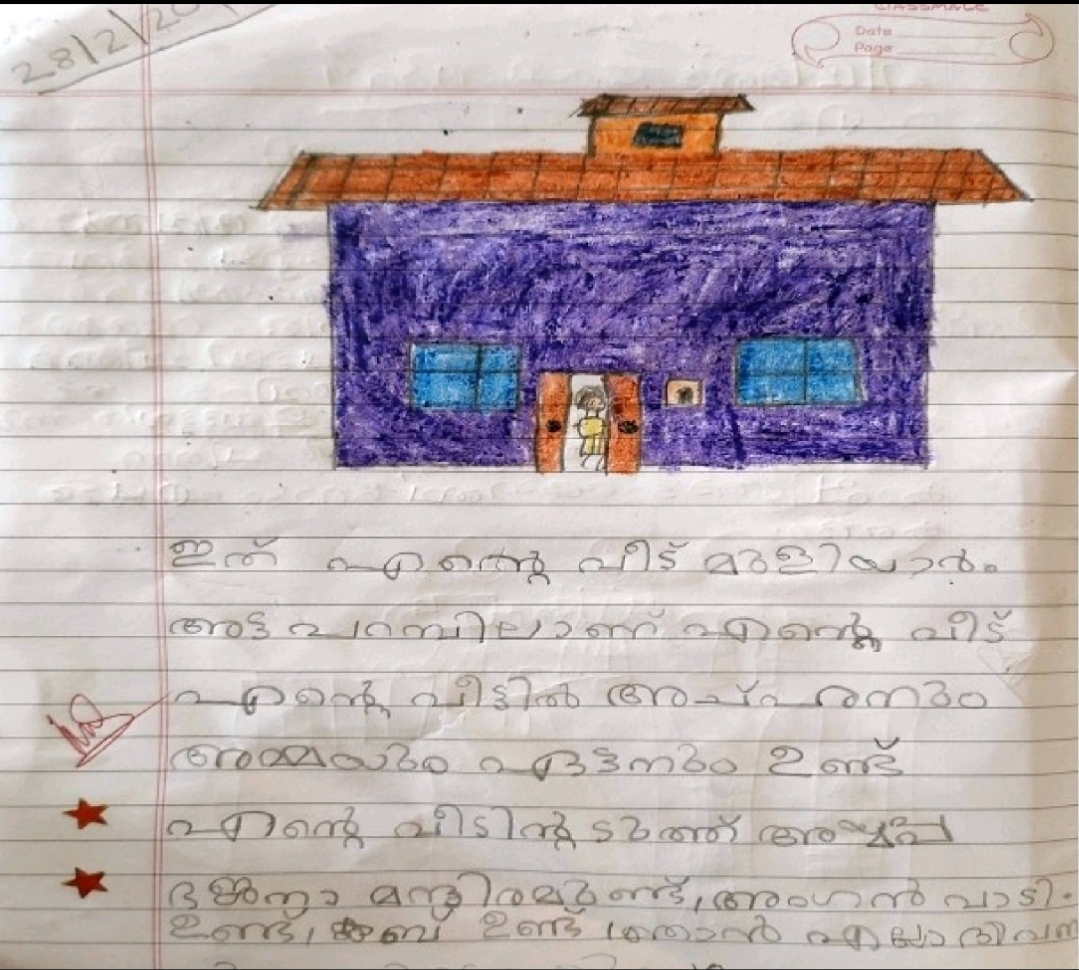 28/2/20
CLASSMATE
Date
Page
ഇത് എന്റെ വീട് മുളിയാർ.
അട്ട പറമ്പിലാണ് എന്റെ വീട്
എന്റെ വീട്ടിൽ അച്ഛനും
അമ്മയും ഏട്ടനും ഉണ്ട്
എന്റെ വീടിന്റടുത്ത് അയ്യപ്പ
ഭജനാ മന്ദിരമുണ്ട്, അംഗൻ പാടി.
ഉണ്ട്, ക്ലബ് ഉണ്ട് ഞാൻ എല്ലാ ദിവസ